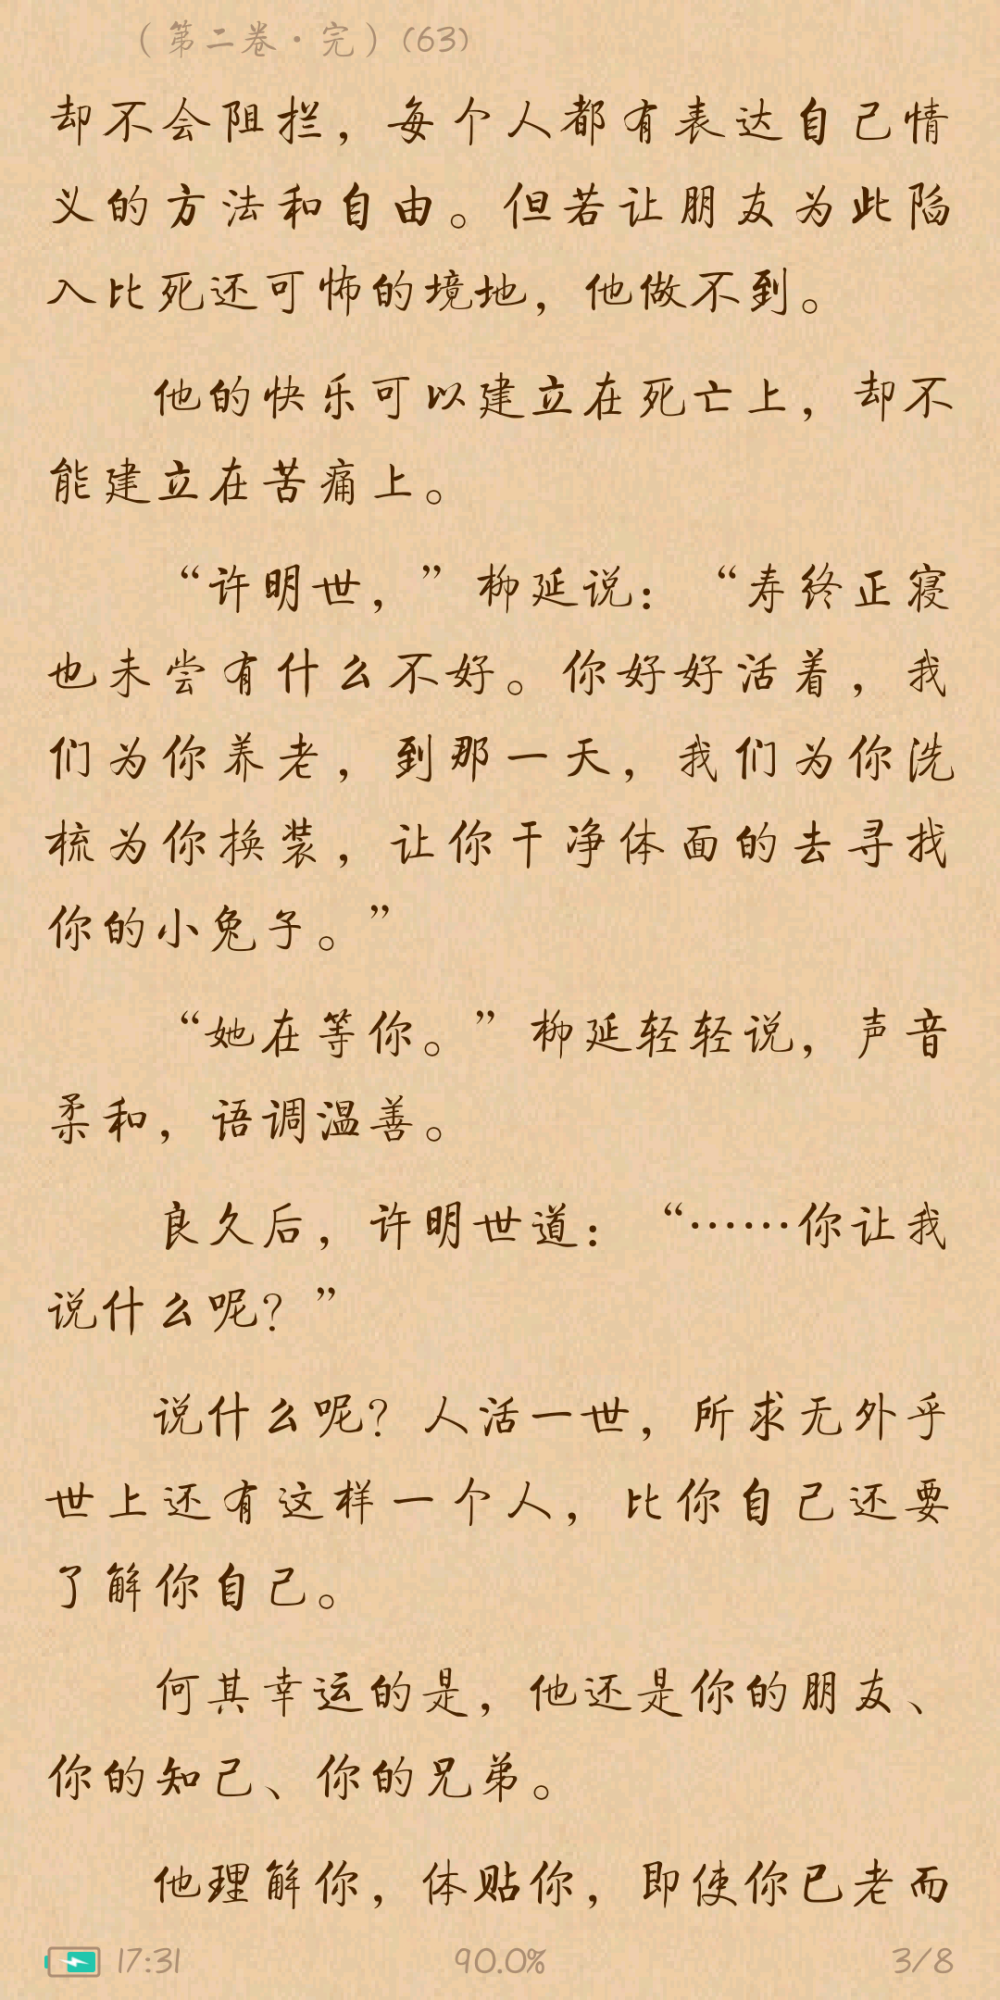 （第二卷·完）(63)
却不会阻拦，每个人都有表达自己情
义的方法和自由。但若让朋友为此陷
入比死还可怖的境地，他做不到。
他的快乐可以建立在死亡上，却不
能建立在苦痛上。
“许明世，”柳延说：“寿终正寝
也未尝有什么不好。你好好活着，我
们为你养老，到那一天，我们为你洗
梳为你换装，让你干净体面的去寻找
你的小兔子。”
“她在等你。”柳延轻轻说，声音
柔和，语调温善。
良久后，许明世道：“……你让我
说什么呢？”
说什么呢？人活一世，所求无外乎
世上还有这样一个人，比你自己还要
了解你自己。
何其幸运的是，他还是你的朋友、
你的知己、你的兄弟。
他理解你，体贴你，即使你已老而
17:31
90.0%
3/8